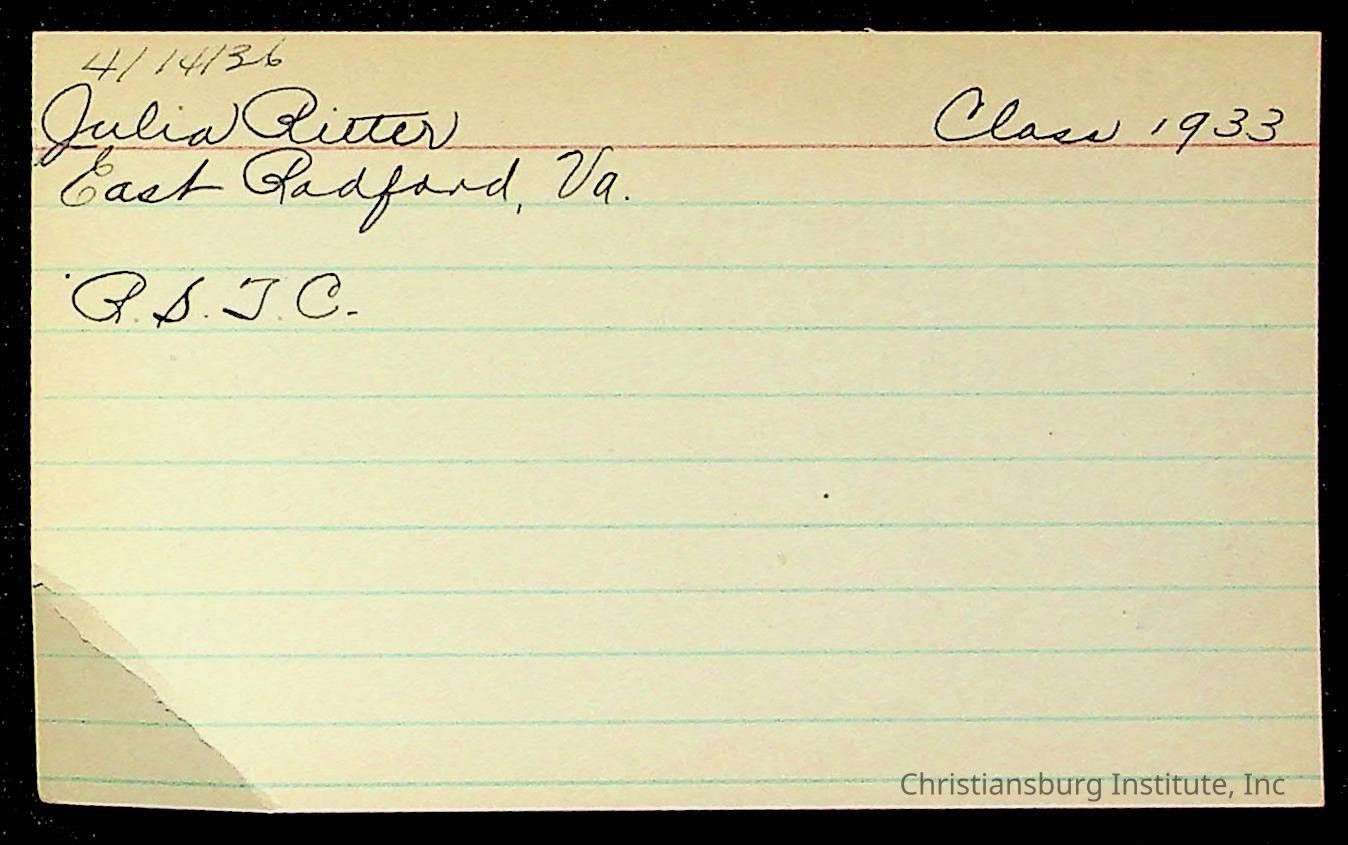 4/14/36
Julia Ritter Class 1933
East Radford, Va.
R.S.T.C.
Christiansburg Institute, Inc